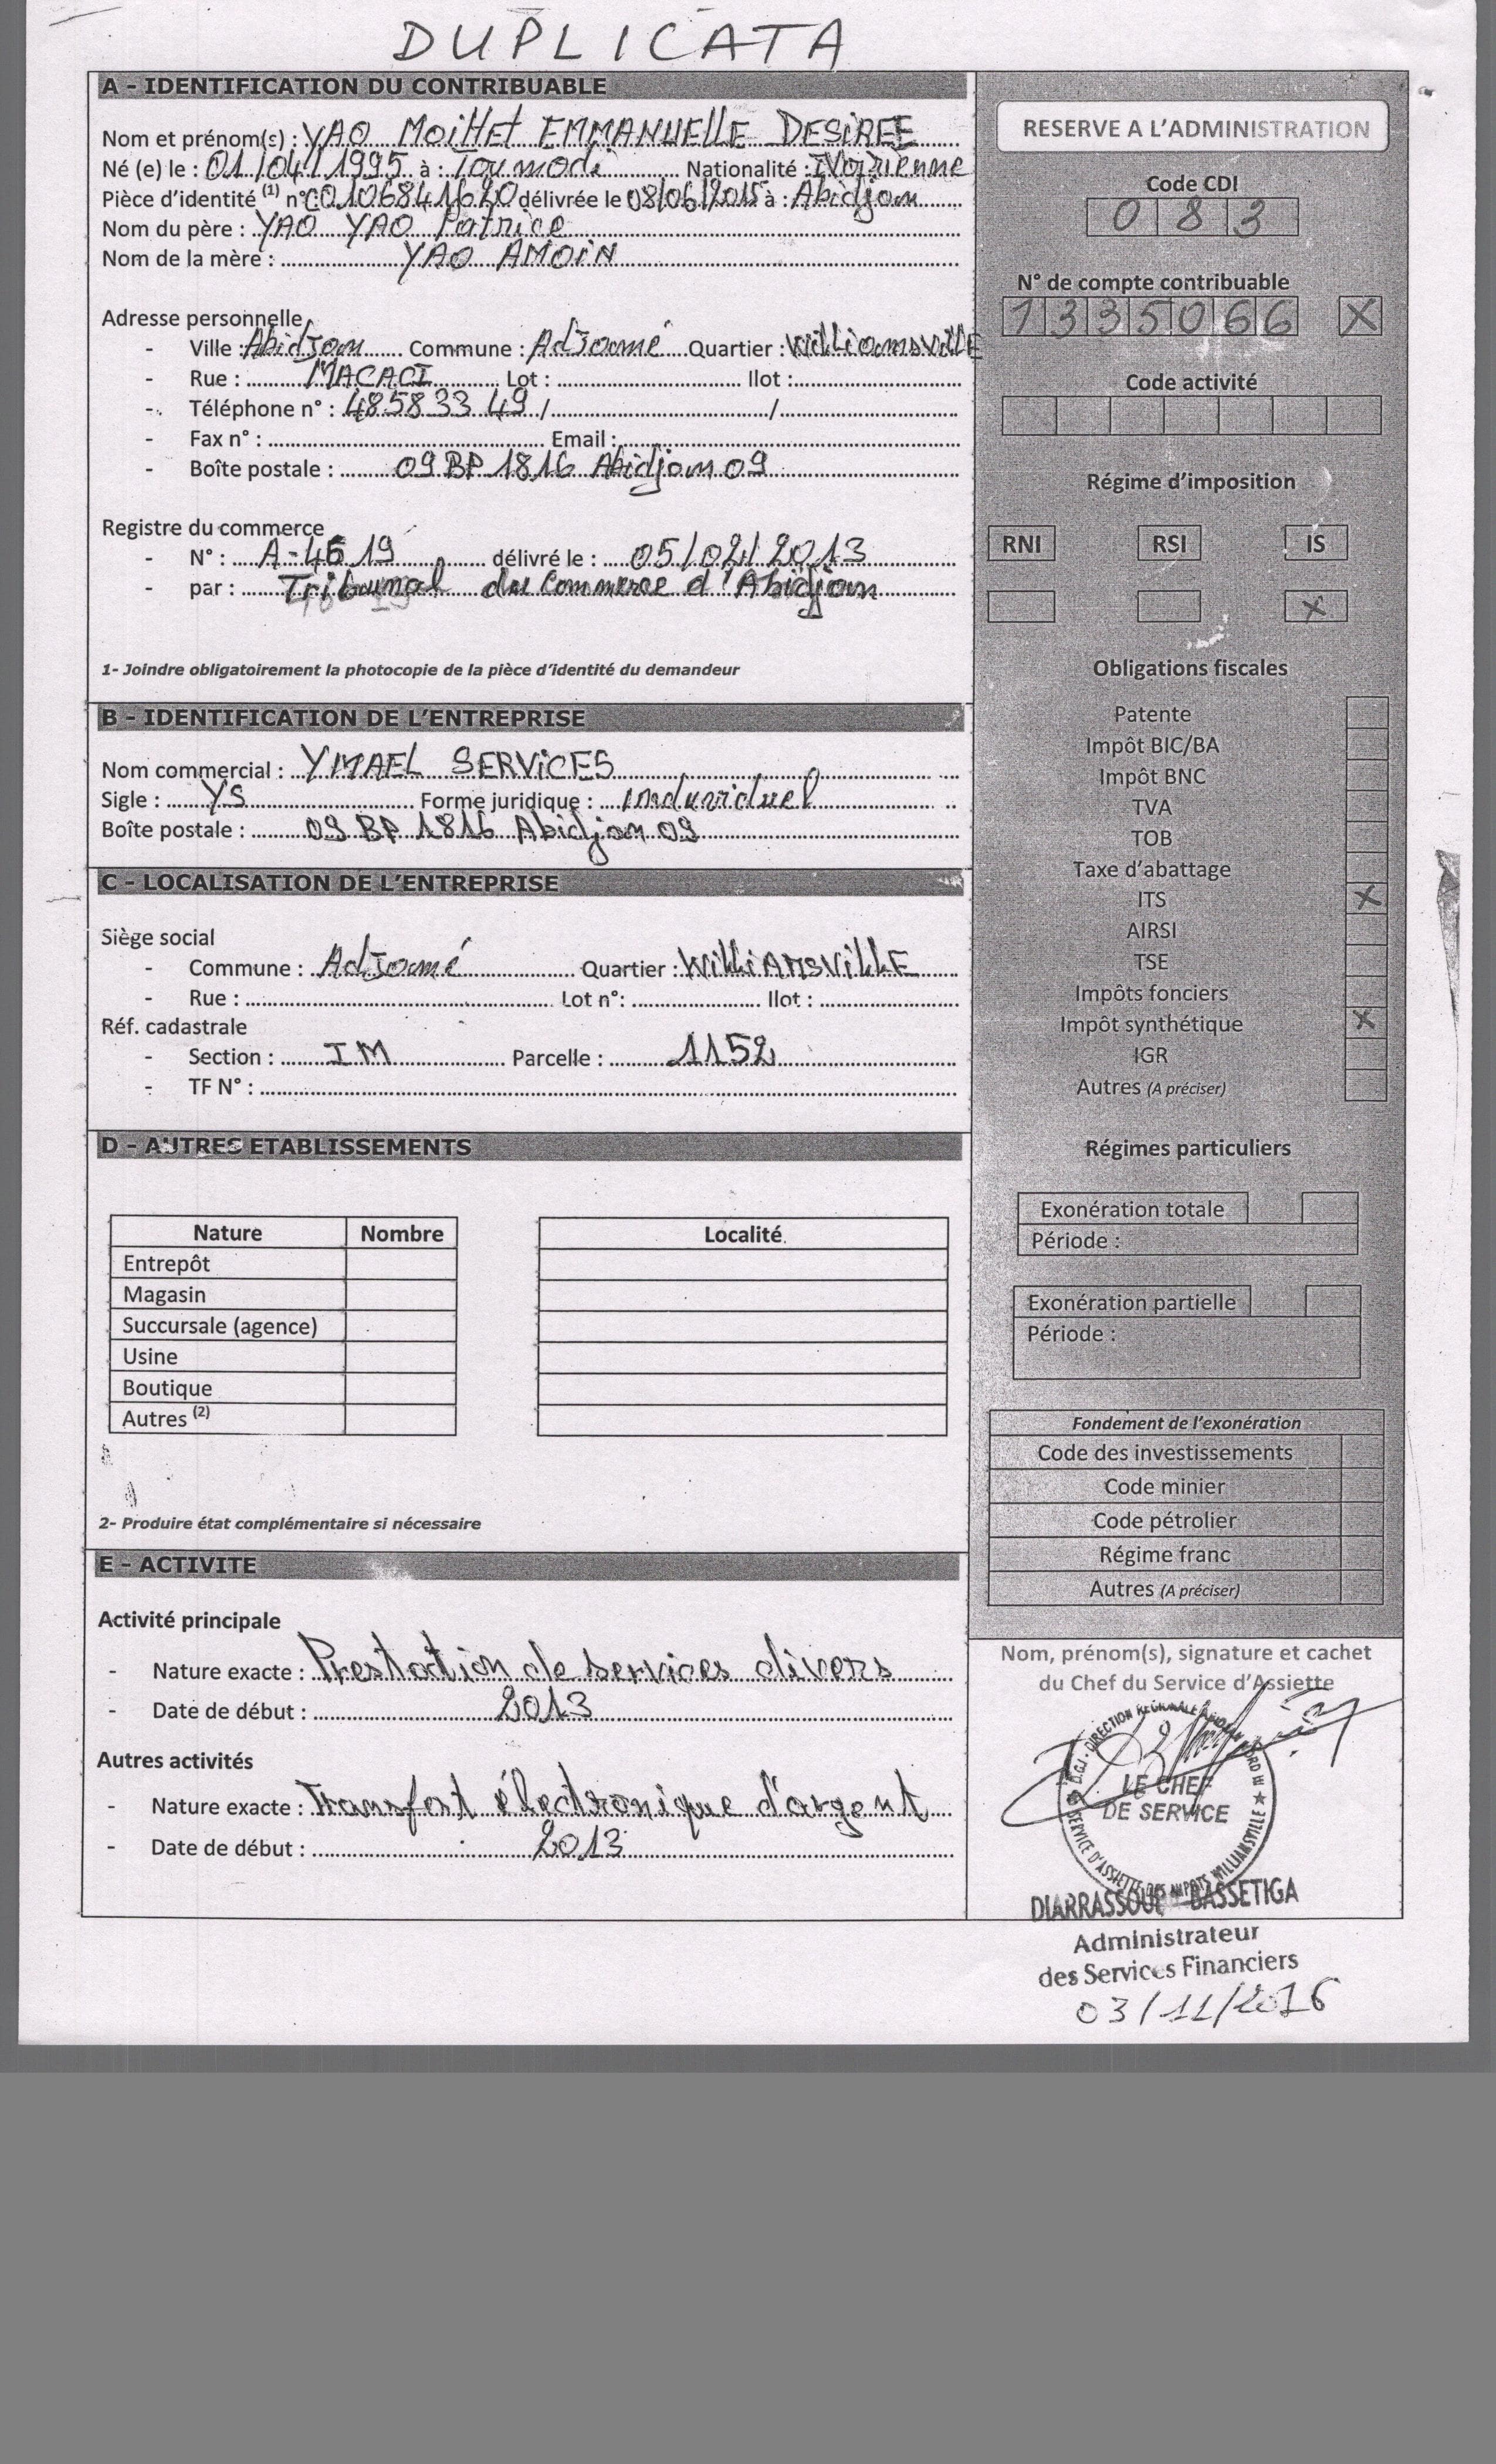 DUPLICATA
A - IDENTIFICATION DU CONTRIBUABLE
Nom et prénom(s) : YAO MOiHEt EMMANUELLE DESIREE
Né (e) le : 01/04/1995 à : Toumodi Nationalité : IVoirienne
Pièce d'identité (1) n° C0106841620 délivrée le 08/06/2015 à : Abidjan
Nom du père : YAO YAO Patrice
Nom de la mère : YAO AMOiN
Adresse personnelle
- Ville : Abidjan Commune : AdJamé Quartier : WilliamsVillE
- Rue : MACACI Lot : Ilot :
- Téléphone n° : 48583349 / /
- Fax n° : Email :
- Boîte postale : 09 BP 1816 Abidjan 09
Registre du commerce
- N° : A-4619 délivré le : 05/02/2013
- par : Tribunal du Commerce d'Abidjan
1- Joindre obligatoirement la photocopie de la pièce d'identité du demandeur
B - IDENTIFICATION DE L'ENTREPRISE
Nom commercial : YMAEL SERViCES
Sigle : YS Forme juridique : individuel
Boîte postale : 09 BP 1816 Abidjan 09
C - LOCALISATION DE L'ENTREPRISE
Siège social
- Commune : AdJamé Quartier : WilliAMSVillE
- Rue : Lot n°: Ilot :
Réf. cadastrale
- Section : IM Parcelle : 1152
- TF N° :
D - AUTRES ETABLISSEMENTS
Nature Nombre Localité
Entrepôt
Magasin
Succursale (agence)
Usine
Boutique
Autres (2)
2- Produire état complémentaire si nécessaire
E - ACTIVITE
Activité principale
- Nature exacte : Prestation de services divers
- Date de début : 2013
Autres activités
- Nature exacte : Transfert électronique d'argent
- Date de début : 2013
RESERVE A L'ADMINISTRATION
Code CDI
0 8 3
N° de compte contribuable
1 3 3 5 0 6 6 X
Code activité
Régime d'imposition
RNI RSI IS
X
Obligations fiscales
Patente
Impôt BIC/BA
Impôt BNC
TVA
TOB
Taxe d'abattage
ITS X
AIRSI
TSE
Impôts fonciers
Impôt synthétique X
IGR
Autres (A préciser)
Régimes particuliers
Exonération totale
Période :
Exonération partielle
Période :
Fondement de l'exonération
Code des investissements
Code minier
Code pétrolier
Régime franc
Autres (A préciser)
Nom, prénom(s), signature et cachet
du Chef du Service d'Assiette
D.G.I - DIRECTION REGIONALE ABIDJAN NORD III
LE CHEF
DE SERVICE
SERVICE D'ASSIETTE DES IMPOTS WILLIAMSVILLE
BASSETIGA
Administrateur
des Services Financiers
03/11/2016